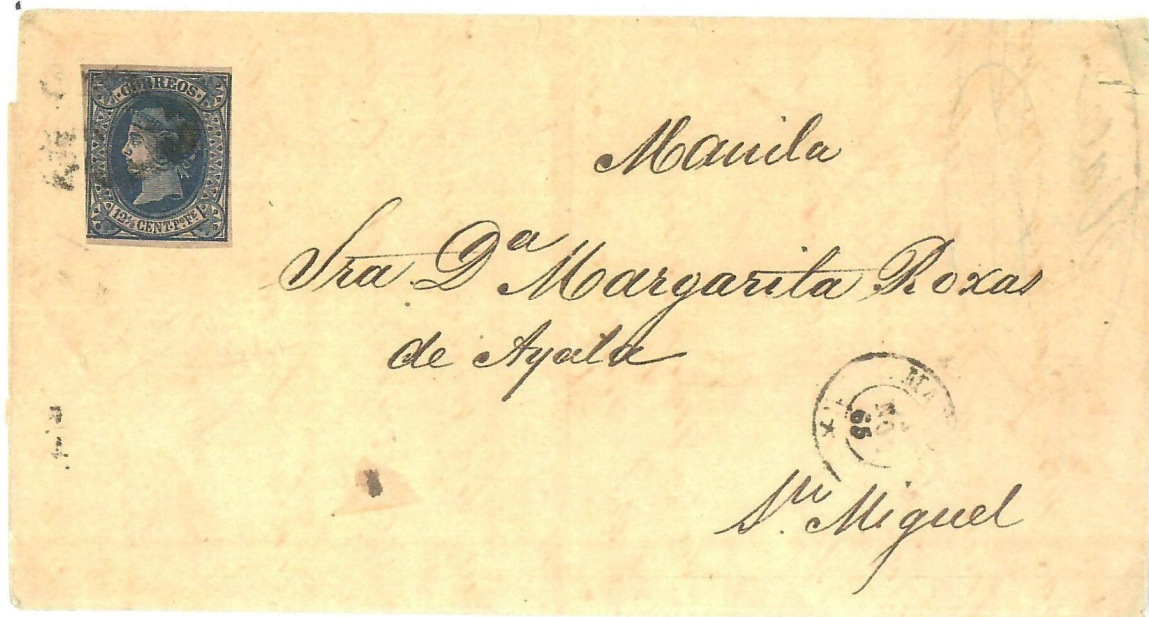 CORREOS
12 4/8 CENT. P.º Fe.
Manila
Sra Dª Margarita Roxas
de Ayala
MA
NO
65
Sn Miguel